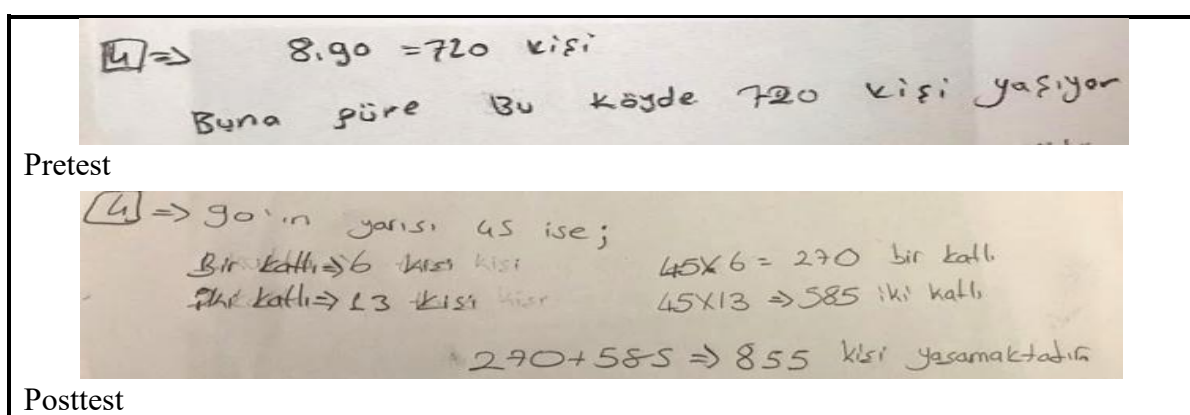 4 => 8.90 = 720 kişi
Buna göre Bu köyde 720 kişi yaşıyor
Pretest
4 => 90'ın yarısı 45 ise;
Bir katlı => 6 kişi kişi 45x6 = 270 bir katlı
İki katlı => 13 kişi kişi 45x13 => 585 iki katlı
270+585 => 855 kişi yaşamaktadır
Posttest